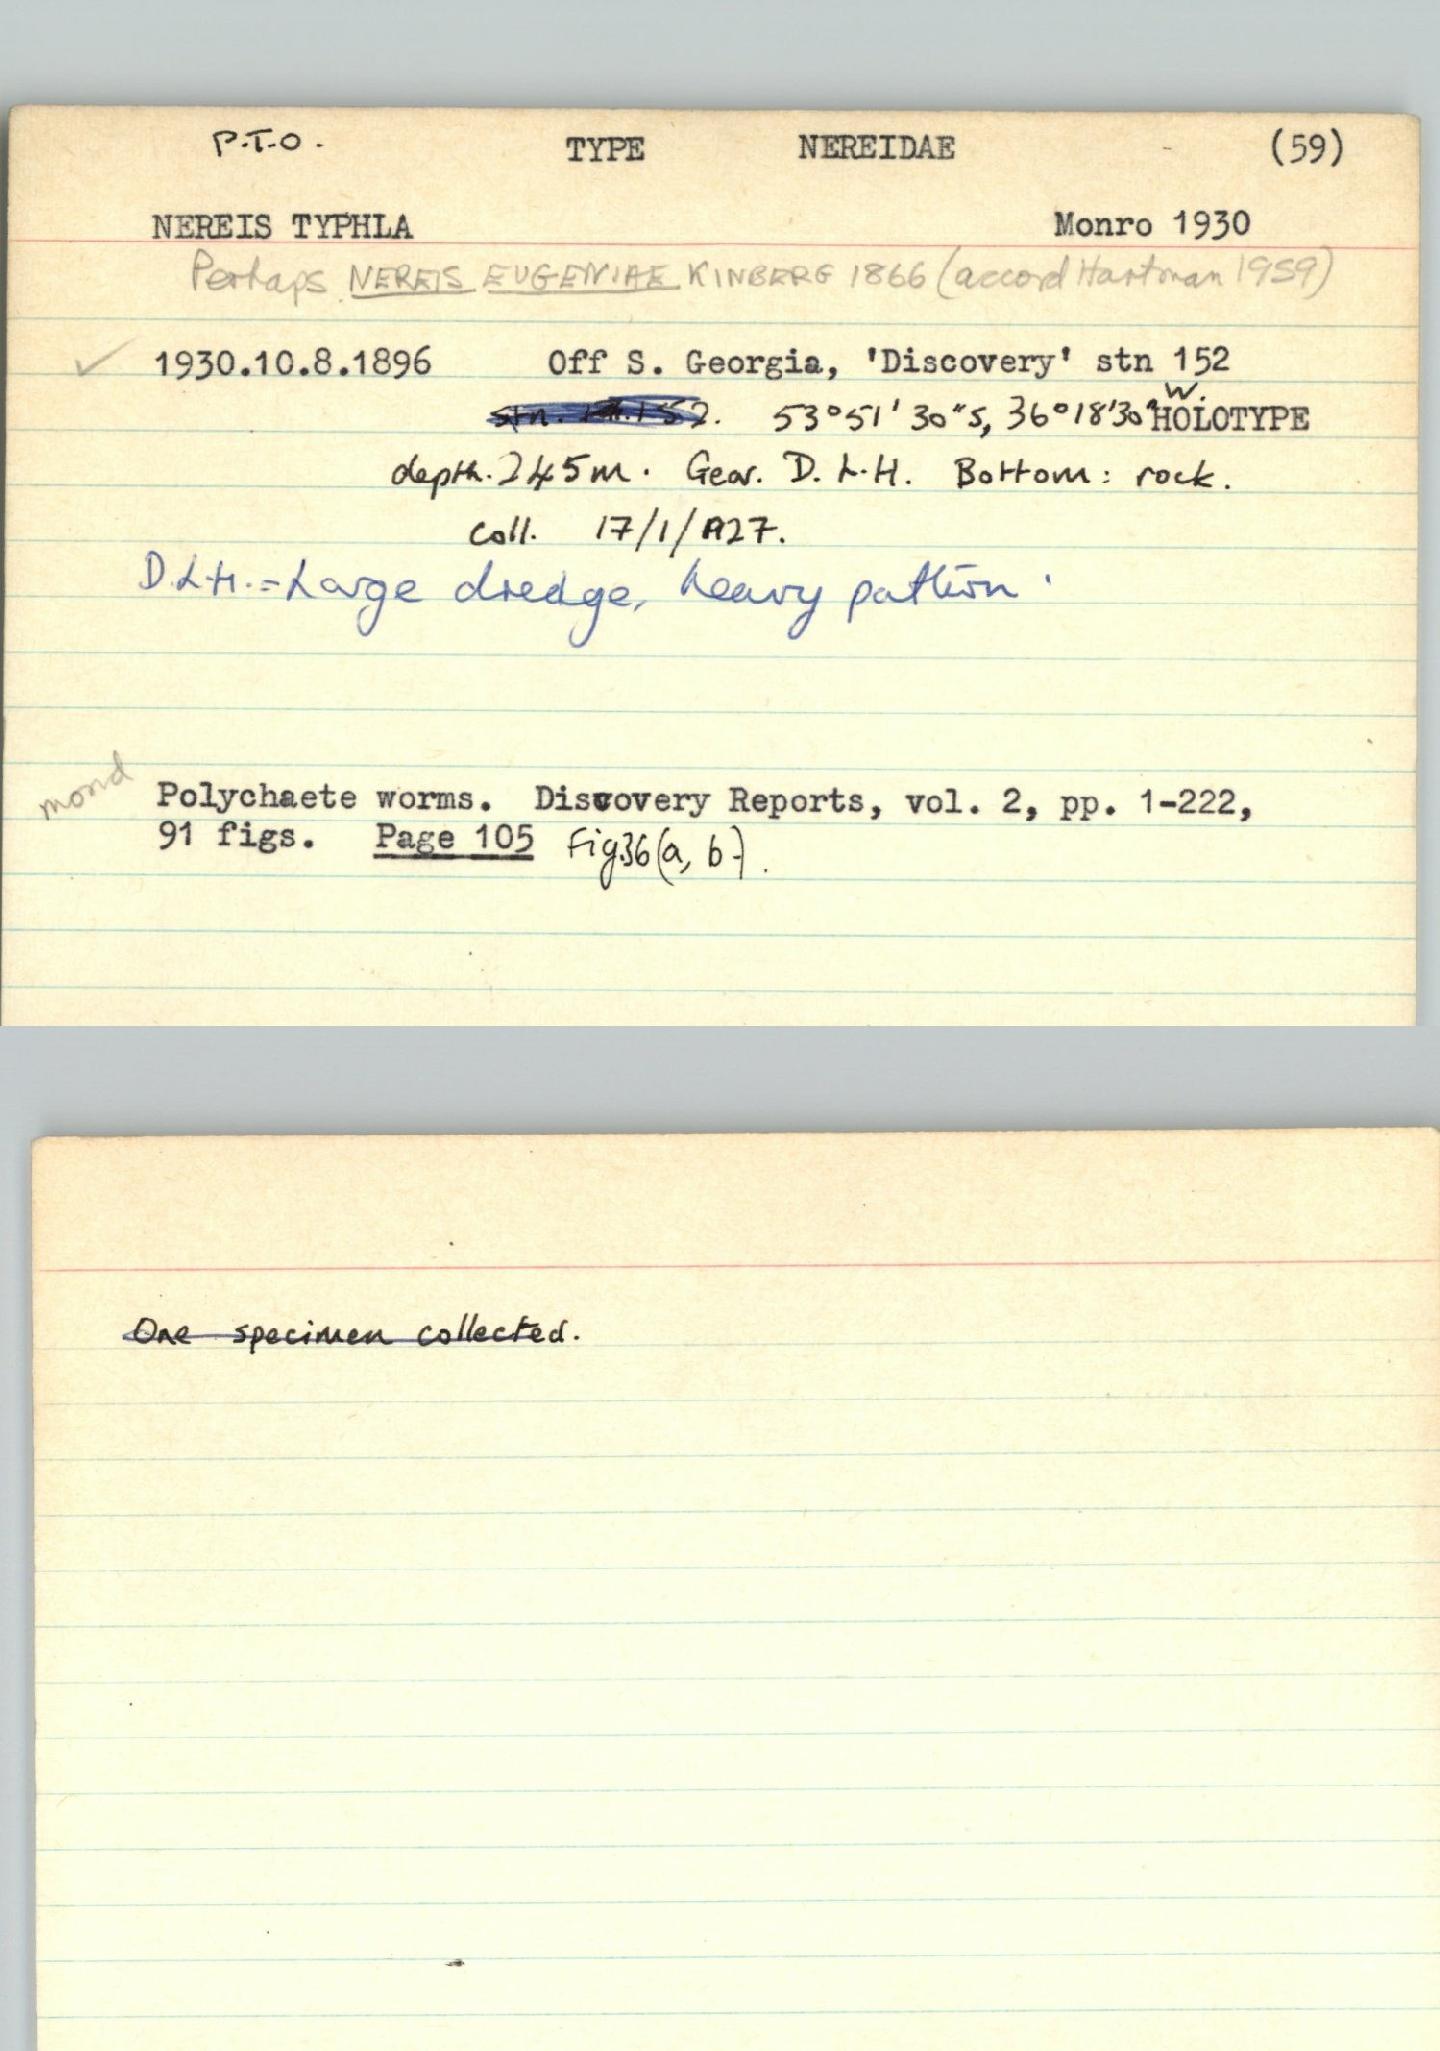 P.T.O. TYPE NEREIDAE (59)
NEREIS TYPHLA Monro 1930
Perhaps NEREIS EUGENIAE KINBERG 1866 (accord Hartman 1959)
✓ 1930.10.8.1896 Off S. Georgia, 'Discovery' stn 152
53°51'30"S, 36°18'30"W. HOLOTYPE
depth. 245m. Gear. D.L.H. Bottom: rock.
Coll. 17/1/1927.
D.L.H. = Large dredge, heavy pattern.
Polychaete worms. Discovery Reports, vol. 2, pp. 1-222,
91 figs. Page 105 Fig36(a, b.).
One specimen collected.